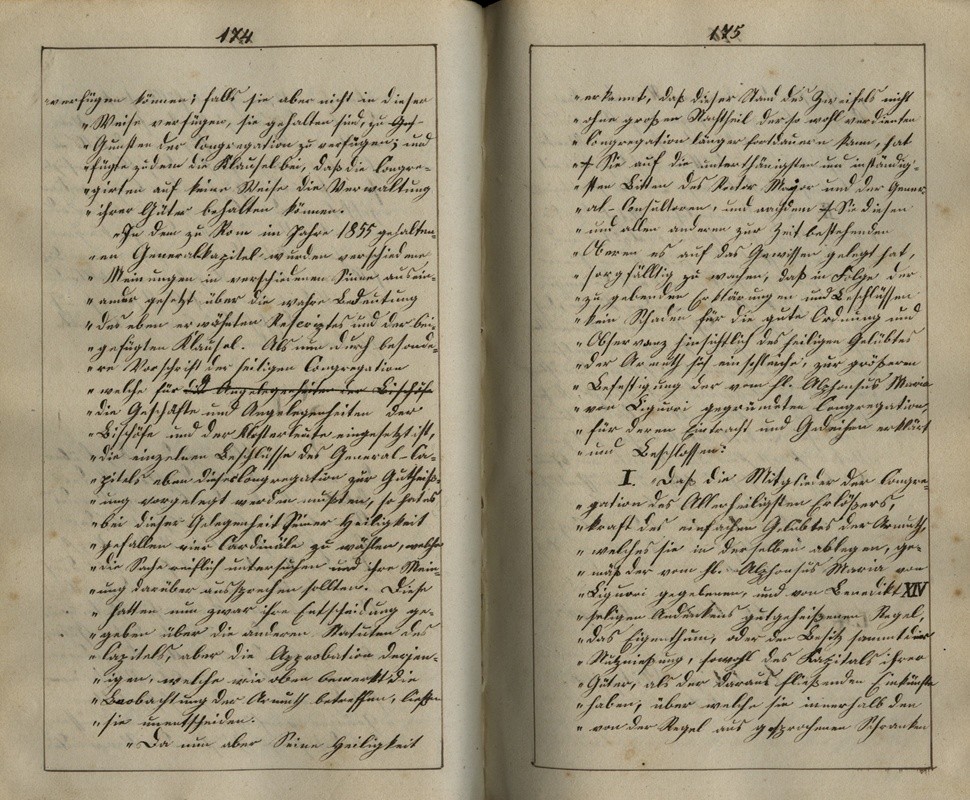 174
„verfügen können; falls sie aber nicht in dieser
„Weise verfügen, sie gehalten sind, zu
„Gunsten der Congregation zu verfügen; und
„fügte zudem die Klausel bei, daß die Congre-
„girten auf keine Weise die Verwaltung
„ihrer Güter behalten können.
„In dem zu Rom im Jahre 1855 gehalten-
„en Generalkapitel wurden verschiedene
„Meinungen in verschiedenem Sinne ausein-
„ander gesetzt über die wahre Bedeutung
„des eben erwähnten Rescriptes und der bei-
„gefügten Klausel. Als nun durch besonde-
„re Vorschrift der heiligen Congregation
„welche für die Angelegenheiten der Bischöfe
„die Geschäfte und Angelegenheiten der
„Bischöfe und der Klosterleute eingesetzt ist,
„die einzelnen Beschlüsse des General-Ca-
„pitels eben dieser Congregation zur Gutheiß-
„ung vorgelegt werden mußten, so hat es
„bei dieser Gelegenheit Seiner Heiligkeit
„gefallen vier Cardinäle zu wählen, welche
„die Sache reiflich untersuchen und ihre Mein-
„ung darüber aussprechen sollten. Diese
„hatten nun zwar ihre Entscheidung ge-
„geben über die anderen Statuten des
„Capitels, aber die Approbation derjen-
„igen, welche wie oben bemerkt die
„Beobachtung der Armuth betreffen, ließen
„sie unentschieden.
„Da nun aber Seine Heiligkeit
175
„erkennt, daß dieser Stand des Zweifels nicht
„ohne großen Nachtheil der so wohl verdienten
„Congregation länger fortdauern kann, hat
„Sie auf die unterthänigsten und inständig-
„sten Bitten des Rector Major und der Gener-
„al-Consultoren, und nachdem Sie diesen
„und allen anderen zur Zeit bestehenden
„Oberen es auf das Gewissen gelegt hat,
„sorgfältig zu wachen, daß in Folge der
„zu gebenden Erklärungen und Beschlüssen
„kein Schaden für die gute Ordnung und
„Observanz hinsichtlich des heiligen Gelübdes
„der Armuth sich einschleiche, zur größeren
„Befestigung der vom hl. Alphonsus Maria
„von Liguori gegründeten Congregation,
„für deren Eintracht und Gedeihen erklärt
„und Beschlossen:
I. „Daß die Mitglieder der Congre-
„gation des Allerheiligsten Erlösers,
„kraft des einfachen Gelübdes der Armuth,
„welches sie in derselben ablegen, ge-
„mäß der vom hl. Alphonsus Maria von
„Liguori gegebenen, und von Benedikt XIV
„seligen Andenkens gutgeheißenen Regel,
„das Eigenthum, oder den Besitz sammt der
„Nutznießung, sowohl des Kapitals ihrer
„Güter, als der daraus fließenden Einkünfte
„haben; über welche sie innerhalb den
„von der Regel ausgesprochenen Schranken